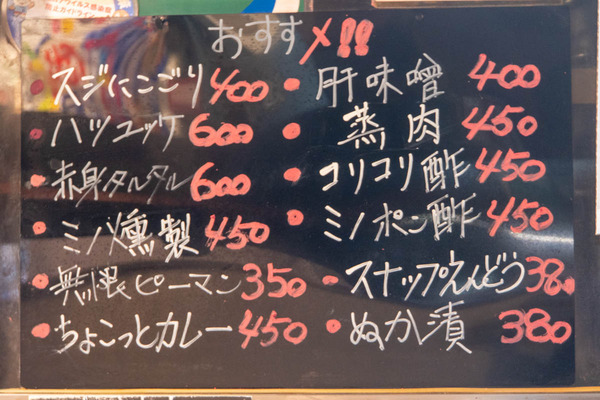 おすすメ!!
スジにこごり 400
ハツユッケ 600
赤身タルタル 600
ミノ燻製 450
無限ピーマン 350
ちょこっとカレー 450
肝味噌 400
蒸肉 450
コリコリ酢 450
ミノポン酢 450
スナップえんどう 380
ぬか漬 380